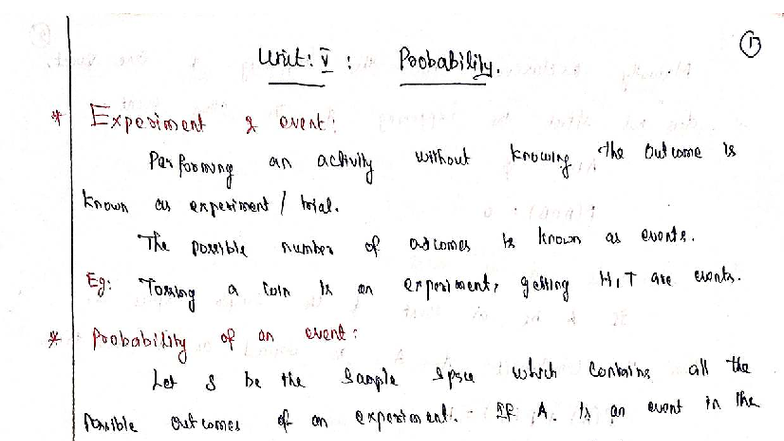 ①
Unit: V : Probability.
* Experiment & event:
Performing an activity without knowing the outcome is
known as experiment / trial.
The possible number of outcomes is known as events.
Eg: Tossing a coin is an experiment, getting H,T are events.
* Probability of an event:
Let S be the Sample space which contains all the
possible outcomes of an experiment. If A. is an event in the